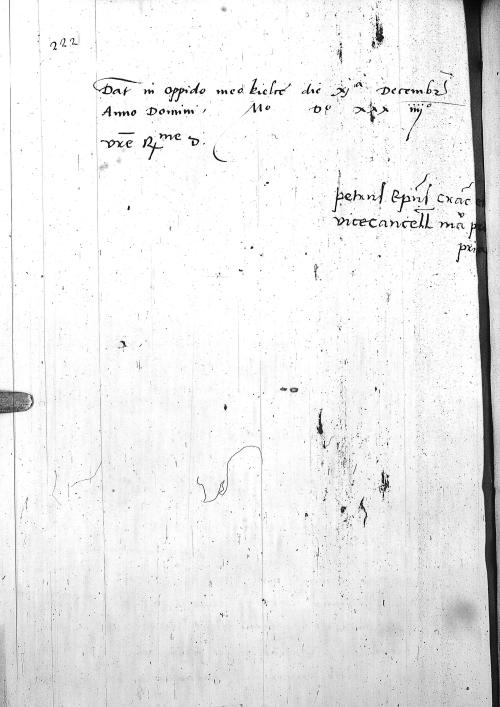 222
Dat in oppido meo kielcē die xjª Decembr̄
Anno Domini Mº Dº xxx iiijº
vrē R^me D.
petrus Epūs Crac̄
vicecancell mā